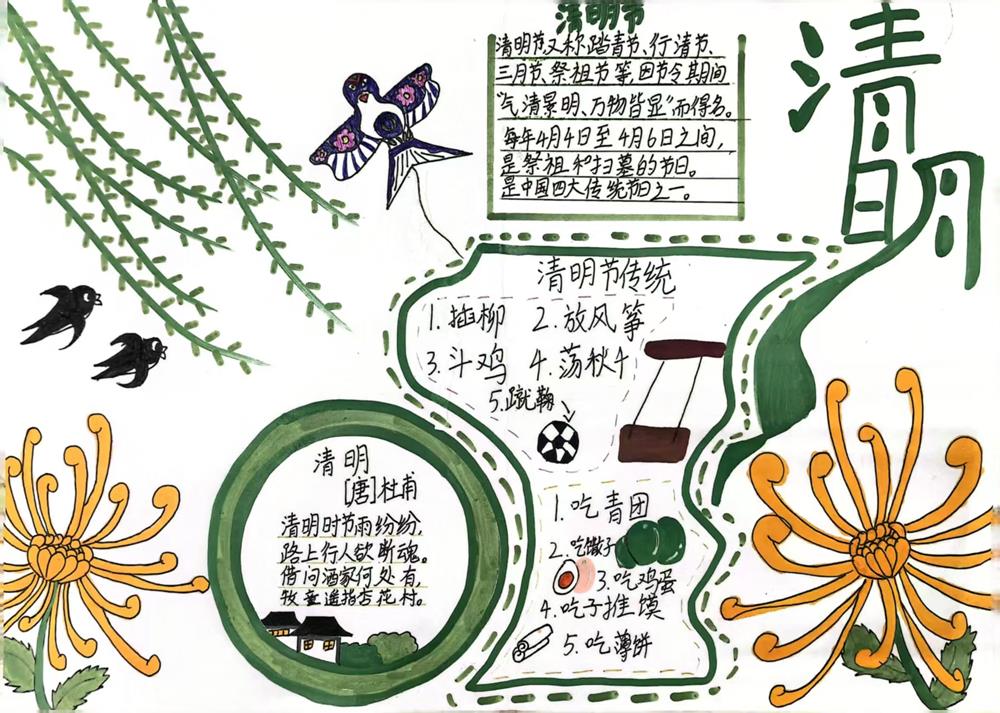 清明
清明节
清明节又称踏青节、行清节、
三月节、祭祖节等,因节令期间
“气清景明、万物皆显”而得名。
每年4月4日至4月6日之间,
是祭祖和扫墓的节日。
是中国四大传统节日之一。
清明节传统
1.插柳 2.放风筝
3.斗鸡 4.荡秋千
5.蹴鞠
1.吃青团
2.吃馓子
3.吃鸡蛋
4.吃子推馍
5.吃薄饼
清明
[唐]杜甫
清明时节雨纷纷,
路上行人欲断魂。
借问酒家何处有,
牧童遥指杏花村。